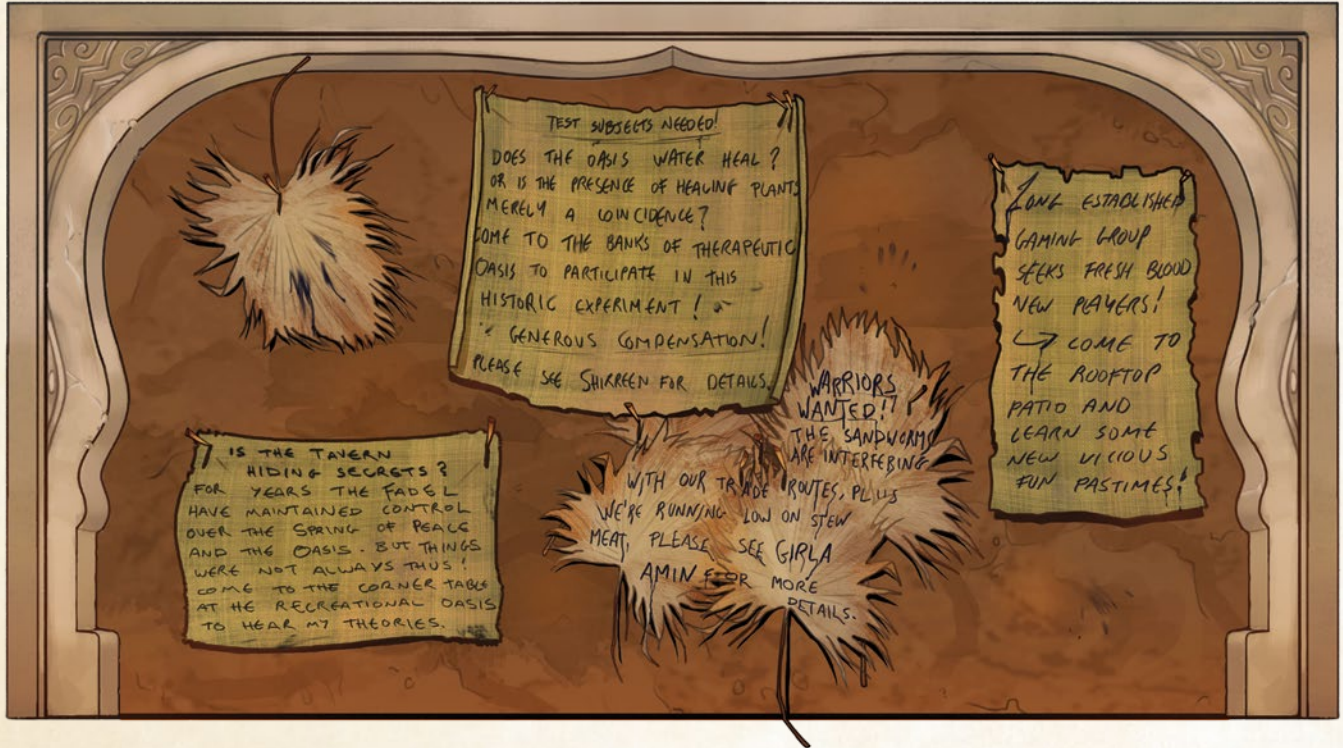 TEST SUBJECTS NEEDED!
DOES THE OASIS WATER HEAL?
OR IS THE PRESENCE OF HEALING PLANTS
MERELY A COINCIDENCE?
COME TO THE BANKS OF THERAPEUTIC
OASIS TO PARTICIPATE IN THIS
HISTORIC EXPERIMENT!
GENEROUS COMPENSATION!
PLEASE SEE SHIRREEN FOR DETAILS.
LONG ESTABLISHED
GAMING GROUP
SEEKS FRESH BLOOD
NEW PLAYERS!
↳ COME TO
THE ROOFTOP
PATIO AND
LEARN SOME
NEW VICIOUS
FUN PASTIMES!
IS THE TAVERN
HIDING SECRETS?
FOR YEARS THE FADEL
HAVE MAINTAINED CONTROL
OVER THE SPRING OF PEACE
AND THE OASIS. BUT THINGS
WERE NOT ALWAYS THUS!
COME TO THE CORNER TABLE
AT HE RECREATIONAL OASIS
TO HEAR MY THEORIES.
WARRIORS
WANTED!
THE SANDWORMS
ARE INTERFERING
WITH OUR TRADE ROUTES, PLUS
WE'RE RUNNING LOW ON STEW
MEAT, PLEASE SEE GIRLA
AMIN FOR MORE
DETAILS.